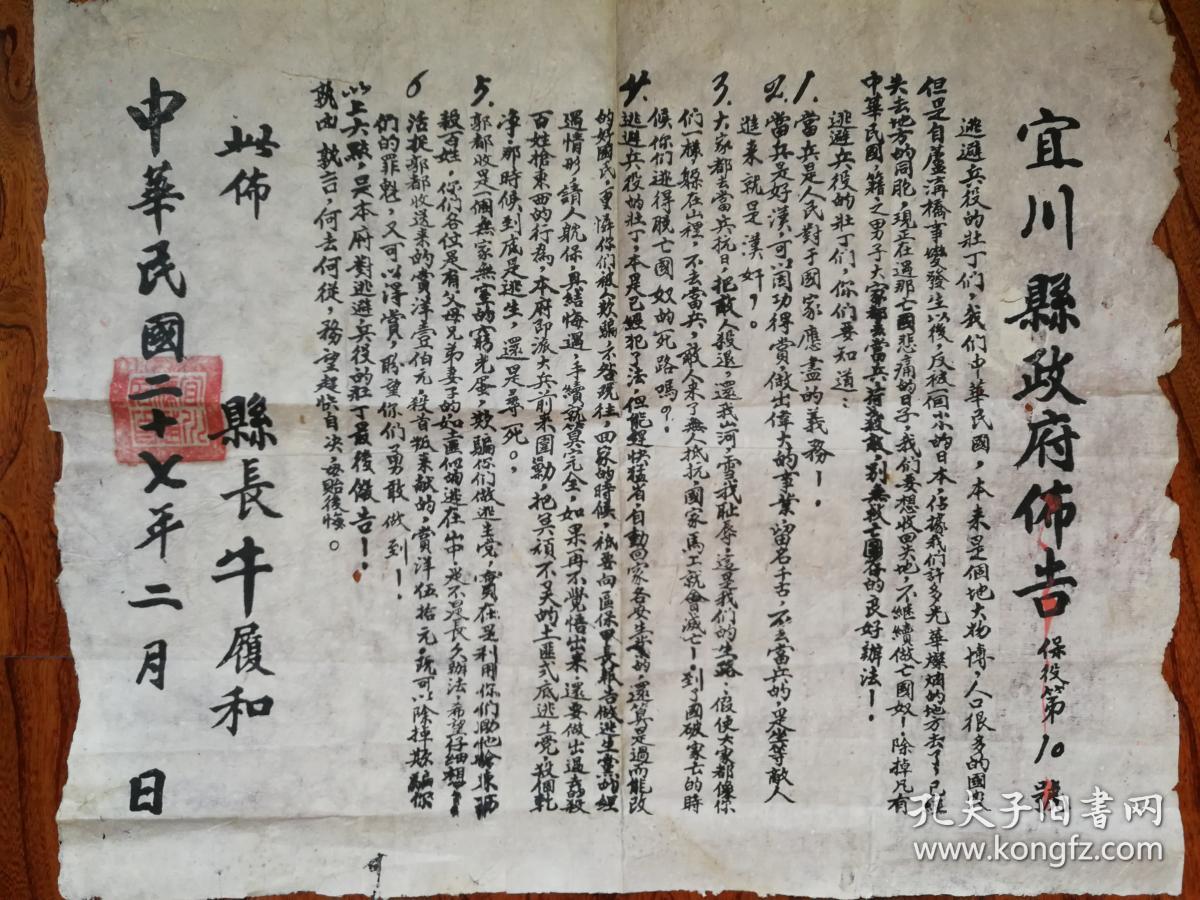 宜川縣政府佈告 保役第10號
逃避兵役的壯丁們，我們中華民國，本來是個地大物博，人口很多的國
但是自蘆溝橋事變發生以後，反被個小小的日本，佔據我們許多光華燦爛的地方去了！已經
失去地方的同胞，現正在過那亡國悲痛的日子，我們要想收回失地，不繼續做亡國奴！除掉凡有
中華民國籍之男子大家都去當兵持殺敵，別無救亡圖存的良好辦法！
逃避兵役的壯丁們，你們要知道：
1.當兵是人民對于國家應盡的義務！。
2.當兵是好漢，可以因功得賞，做出偉大的事業留名千古，不去當兵的，是坐等敵人
進來就是漢奸，。
3.大家都去當兵抗日，把敵人殺退，還我山河，雪我耻辱，這是我們的生路，假使大家都像你
們一樣，躲在山裡，不去當兵，敵人來了無人抵抗，國家馬上就會滅亡！到了國破家亡的時
候你們逃得脫亡國奴的死路嗎？。
4.逃避兵役的壯丁，本是已經犯了法，但能趕快猛省，自動回家各安生業的，還算是過而能改
的好國民，重憐你們被人欺騙，不咎既往，回家的時候，祇要向區保甲長報告做逃生黨的經
過情形請人躭保，具結悔過，手續就算完全，如果再不覺悟出來，還要做出過去殺
百姓搶東西的行為，本府即派大兵前來圍勦，把冥頑不灵的土匪式底逃生党，殺個乾
净，那時候到底是逃生，還是尋死。，
5.郭都收是一個無家無室的窮光蛋，欺騙你們做逃生党，實在是利用你們助他搶東西
殺百姓，你們各位是有父母兄弟妻子的如土匪似的逃在山中，是不是長久辦法，希望仔細想！
6活捉郭都收送來的賞洋壹伯元，殺首級來献的，賞洋伍拾元，既可以除掉欺騙你
們的罪魁，又可以得賞，盼望你們勇敢做到！
以上六點，是本府對逃避兵役的壯丁最後儆告！
孰凶孰吉，何去何從，務望趕快自決毋貽後悔。
此佈
縣長牛履和
中華民國二十七年二月 日
孔夫子旧书网
www.kongfz.com